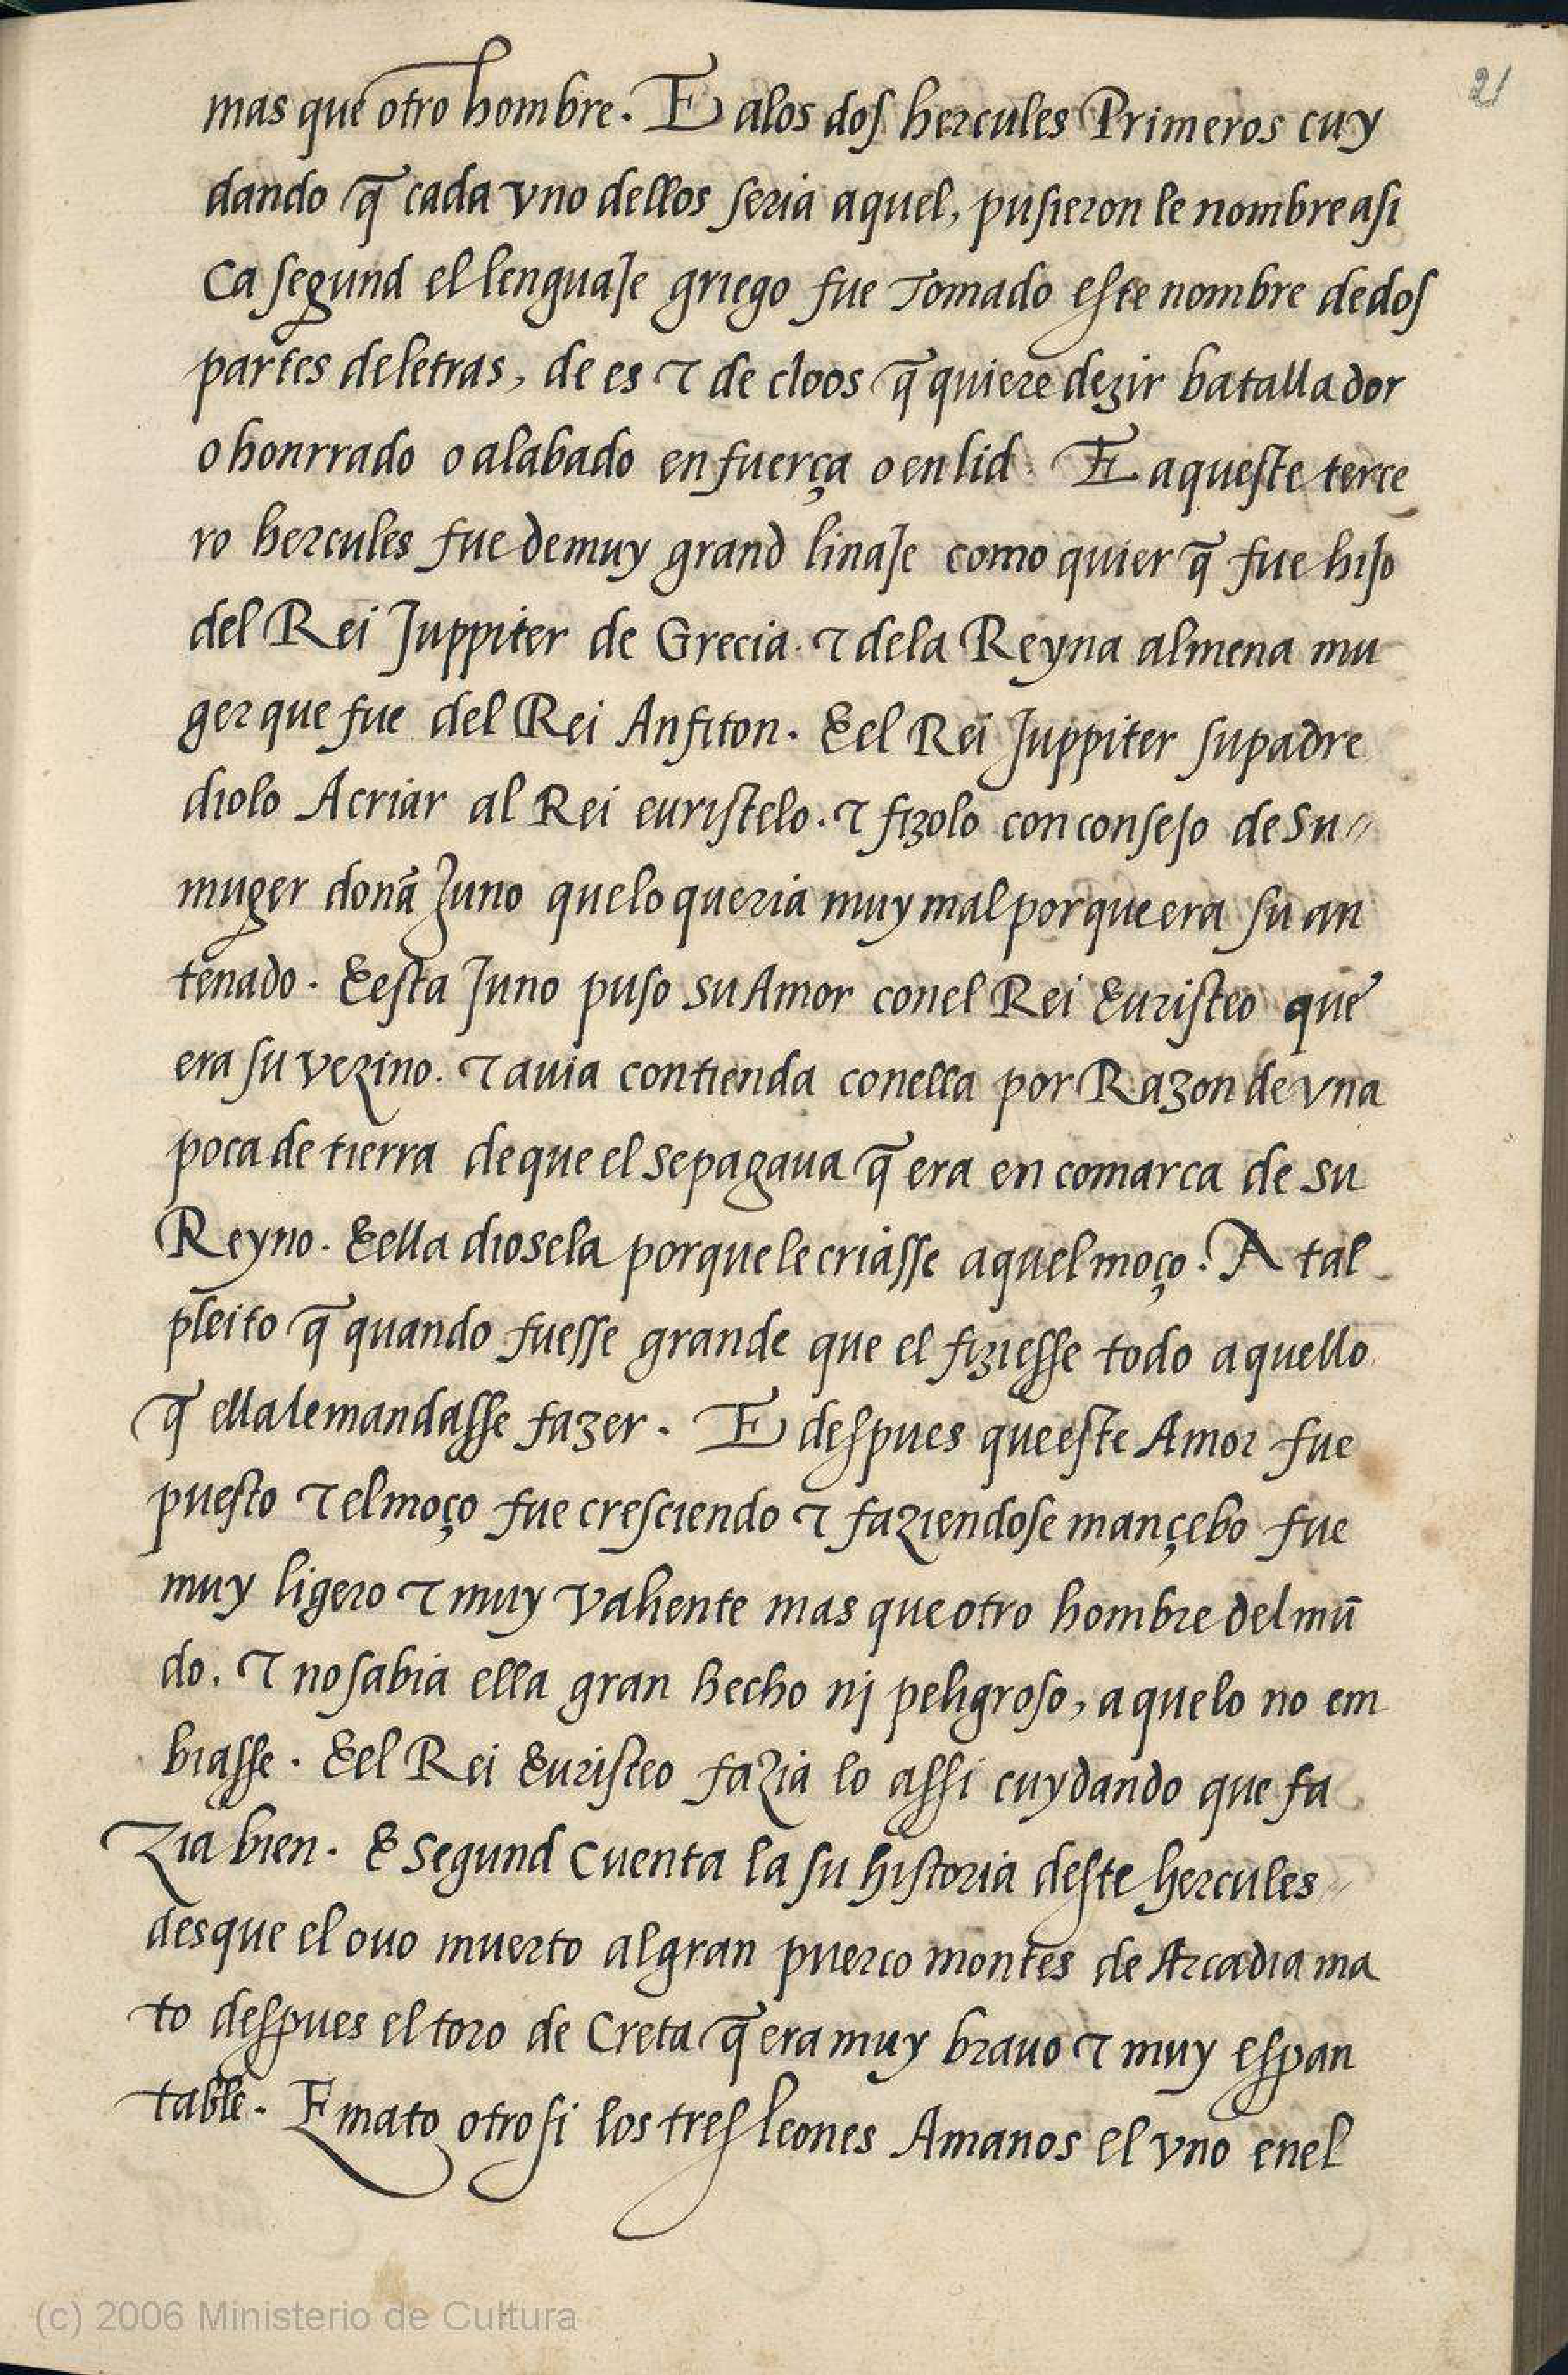 21
mas que otro hombre. E alos dos hercules Primeros cuy
dando q̃ cada vno dellos seria aquel, pusieron le nombre asi
Ca segund el lenguaje griego fue Tomado este nombre de dos
partes de letras, de es ⁊ de cloos q̃ quiere dezir batallador
o honrrado o alabado en fuerça o en lid. E aqueste terce
ro hercules fue de muy grand linaje como quier q̃ fue hijo
del Rei Juppiter de Grecia. ⁊ dela Reyna almena mu
ger que fue del Rei Anfiton. E el Rei Juppiter su padre
diolo Acriar al Rei euristelo. ⁊ fizolo con consejo de Su
muger donã Juno que lo queria muy mal porque era su an
tenado. E esta Juno puso su Amor conel Rei Euristeo que
era su vezino. ⁊ auia contienda conella por Razon de vna
poca de tierra de que el se pagaua q̃ era en comarca de su
Reyno. E ella diosela porque le criasse aquel moço. A tal
pleito q̃ quando fuesse grande que el fiziesse todo aquello
q̃ ella le mandasse fazer. E despues que este Amor fue
puesto ⁊ el moço fue cresciendo ⁊ faziendose mançebo fue
muy ligero ⁊ muy valiente mas que otro hombre del mũ
do. ⁊ no sabia ella gran hecho nj peligroso, a quelo no em
biasse. E el Rei Euristeo fazia lo assi cuydando que fa
zia bien. E segund cuenta la su historia deste hercules
desque el ouo muerto al gran puerco montes de Arcadia ma
to despues el toro de Creta q̃ era muy brauo ⁊ muy espan
table. E mato otrosi los tres leones Amanos el vno enel
(c) 2006 Ministerio de Cultura